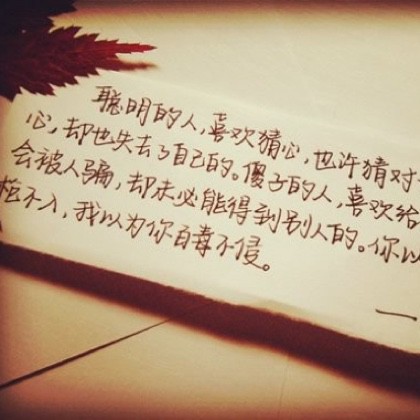 聪明的人,喜欢猜心,也许猜对
心,却也失去了自己的。傻子的人,喜欢给
会被人骗,却未必能得到别人的。你以
枪不入,我以为你百毒不侵。
一